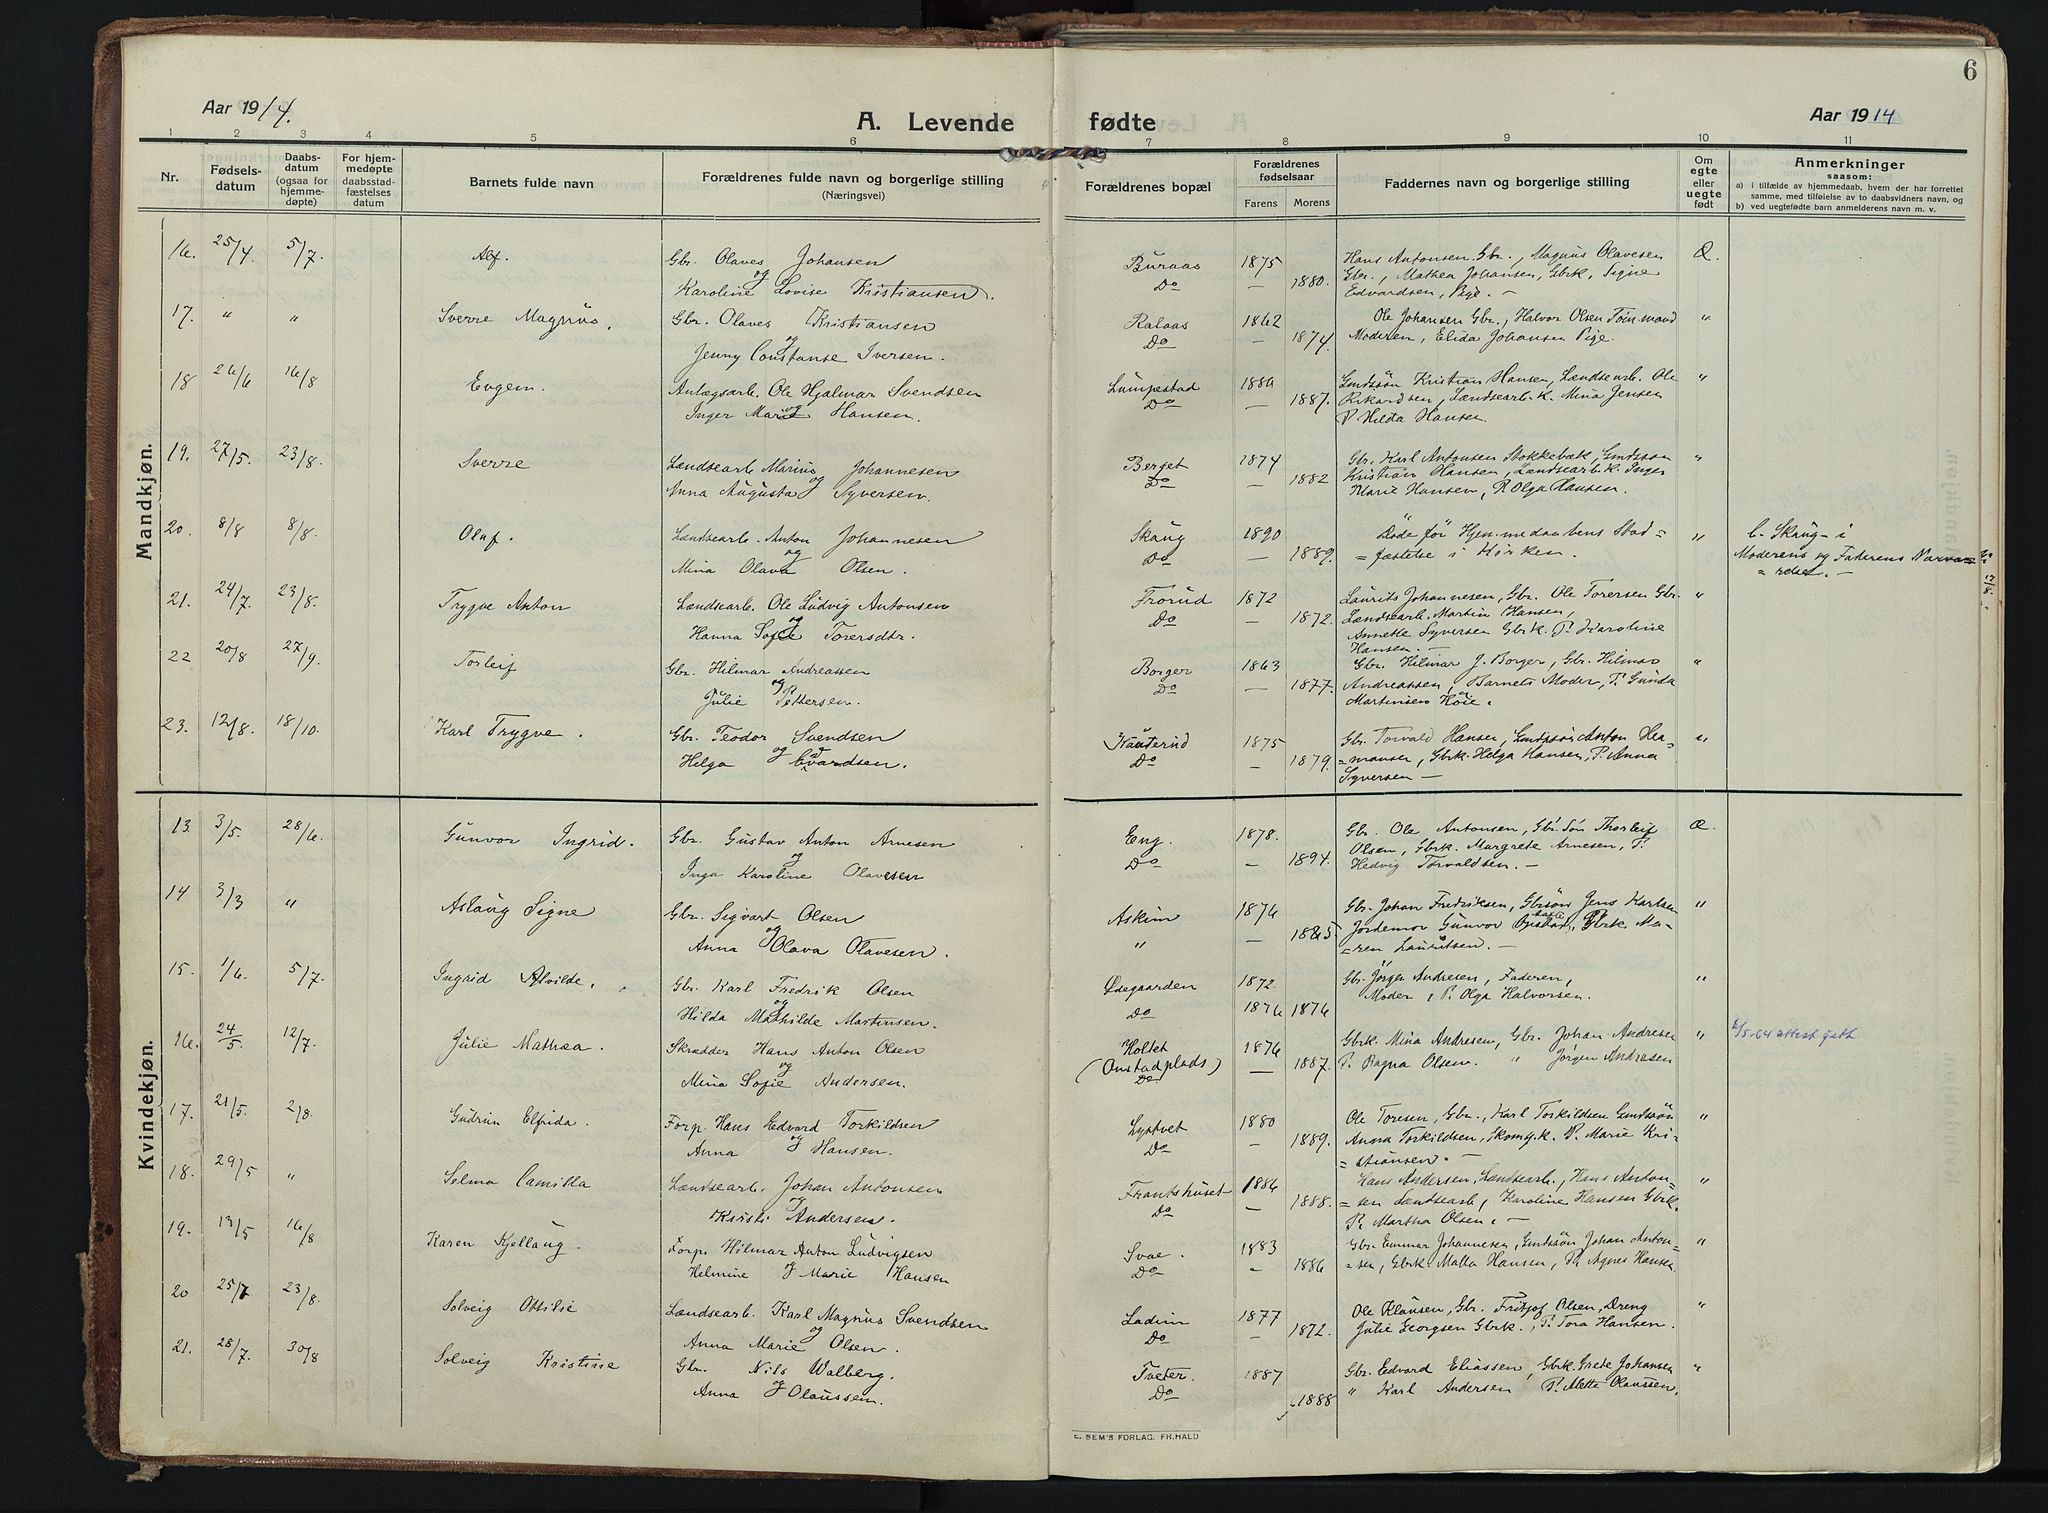 6
Aar 1914.
A. Levende fødte
Aar 1914
1 2 3 4 5 6 7 8 9 10 11
Nr.
Fødsels-
datum
Daabs-
datum
(ogsaa for
hjemme-
døpte)
For hjem-
medøpte
daabsstad-
fæstelses
datum
Barnets fulde navn
Forældrenes fulde navn og borgerlige stilling
(Næringsvei)
Forældrenes bopæl
Forældrenes
fødselsaar
Farens Morens
Faddernes navn og borgerlige stilling
Om
egte
eller
uegte
født
Anmerkninger
saasom:
a) i tilfælde av hjemmedaab, hvem der har forrettet
samme, med tilføielse av to daabsvidners navn, og
b) ved uegtefødte barn anmelderens navn m. v.
Mandkjøn.
16. 25/4 5/7 Alf. Gbr. Olaves Johansen Buraas 1875 Hans Antonsen Gbr., Magnus Olavesen Æ.
og Karoline Lovise Kristiansen. Do — 1880. Gbr., Mathea Johansen, Gbrk, Signe
Edvardsen, Pige. —
17. " " Sverre Magnus. Gbr. Olaves Kristiansen Ralaas 1862 Ole Johansen Gbr., Halvor Olsen Tømmand "
og Jenny Constanse Iversen. Do — 1874. Moderen, Elida Johansen Pige.
18 26/6 16/8 Eugen. Anlægsarb. Ole Hjalmar Svendsen Lumpestad 1880 Gmdssøn Kristian Hansen, Lændsearb. Ole "
og Inger Marie Hansen. Do — 1887. Rikardsen, Lændsearb. k. Mina Jensen
P. Hilda Hansen.
19. 27/5. 23/8. Sverre Lændsearb Marius Johannesen Berget 1874 Gbr. Karl Antonsen Stokkebæk, Gmdssøn "
og Anna Augusta Syversen. Do — 1882 Kristian Hansen, Lændsearb. k. Inger
Marie Hansen, P. Olga Hansen.
20. 8/8 8/8. Olaf. Lændsearb. Anton Johannesen Skaug 1890 Døde før Hjemmedaabens Stad= " b. Skaug i
og Mina Olava Olsen. Do — 1889. =fæstelse i Kirken. Moderens og Faderens Nærvæ=
=relse. —
21. 24/7. 23/8. Trygve Anton Lændsearb. Ole Ludvig Antonsen Frorud 1872 Laurits Johannesen, Gbr. Ole Torersen Gbr. "
og Hanna Sofie Torersdtr. Do — 1872. Lændsearb. Martin Hansen,
Annette Syversen Gbrk. P. Karoline
Hansen. —
22 20/8 27/9. Torleif Gbr. Hilmar Andreassen Borger 1863 Gbr. Hilmar J. Borger, Gbr. Hilmar "
og Julie Pettersen. Do — 1877. Andreassen, Barnets Moder, P. Gunda
Martinsen Høie.
23. 12/8. 18/10. Karl Trygve. Gbr. Teodor Svendsen Kauterud 1875 Gbr. Torvald Hansen, Gmdssøn Anton Her= "
og Helga Edvardsen. Do — 1879. =mansen, Gbrk. Helga Hansen, P. Anna
Syversen —
Kvindekjøn.
13. 3/5 28/6. Gunvor Ingrid. Gbr. Gustav Anton Arnesen Eng. 1878. Gbr. Ole Antonsen, Gbr. Søn Thorleif Æ.
og Inga Karoline Olavesen Do — 1894. Olsen, Gbrk. Margrete Arnesen, P.
Hedvig Torvaldsen. —
14 3/3 " Aslaug Signe Gbr. Sigvart Olsen Askim 1876 Gbr. Johan Fredriksen, Gbrsøn Jens Karlsen "
og Anna Olava Olavesen. " — 1885. Jordemor Gunvor Gbrk. Ma=
=ren Lauritsen. —
15. 1/6 5/7. Ingrid Alvilde. Gbr. Karl Fredrik Olsen Ødegaarden 1872. Gbr. Jørgen Andresen, Faderen, "
og Hilda Mathilde Martinsen. Do 1876 1876 Moder, P. Olga Halvorsen.
16. 24/5 12/7. Julie Mathea. Skrædder Hans Anton Olsen Holtet 1876 Gbrk. Mina Andresen, Gbr. Johan Andresen "
og Mina Sofie Andersen. (Onstadplads) Do — 1887. P. Ragna Olsen. " Jørgen Andresen
17. 21/5. 2/8. Gudrun Elfrida. Forp. Hans Edvard Torkildsen Lystvet 1880 Ole Toresen, Gbr., Karl Torkildsen Gmdssøn "
og Anna Hansen. Do 1889. Anna Torkildsen, Skomg.k. P. Marie Kri=
=stiansen. —
18. 29/5 " Selma Camilla Lændsearb. Johan Antonsen Frankshuset 1886 Hans Andersen, Lændsearb., Hans Anton= "
og Kristi Andersen. Do — 1888. =sen Lændsearb, Karoline Hansen Gbrk.
P. Martha Olsen. —
19. 13/5 16/8 Karen Kjellaug. Forp. Hilmar Anton Ludvigsen Svae. 1883 Gbr. Gunnar Johannesen, Gmdssøn Johan Anton= "
Helmine og Marie Hansen Do — 1886 =sen, Gbrk. Malla Hansen, P. Agnes Hansen
20 25/7 23/8. Solveig Ottilie Lændsearb. Karl Magnus Svendsen Ladim 1877 Ole Klausen, Gbr. Fritjof Olsen, Dreng "
og Anna Marie Olsen. Do — 1872. Julie Georgsen Gbrk., P. Tora Hansen.
21. 28/7. 30/8 Solveig Kristine Gbr. Nils Walberg. Tveter. 1887 Gbr. Edvard Eliassen, Gbrk. Grete Johansen "
Anna og Olaussen. Do 1888 " Karl Andersen P. Alette Olaussen.
E. SEM'S FORLAG. FR.HALD